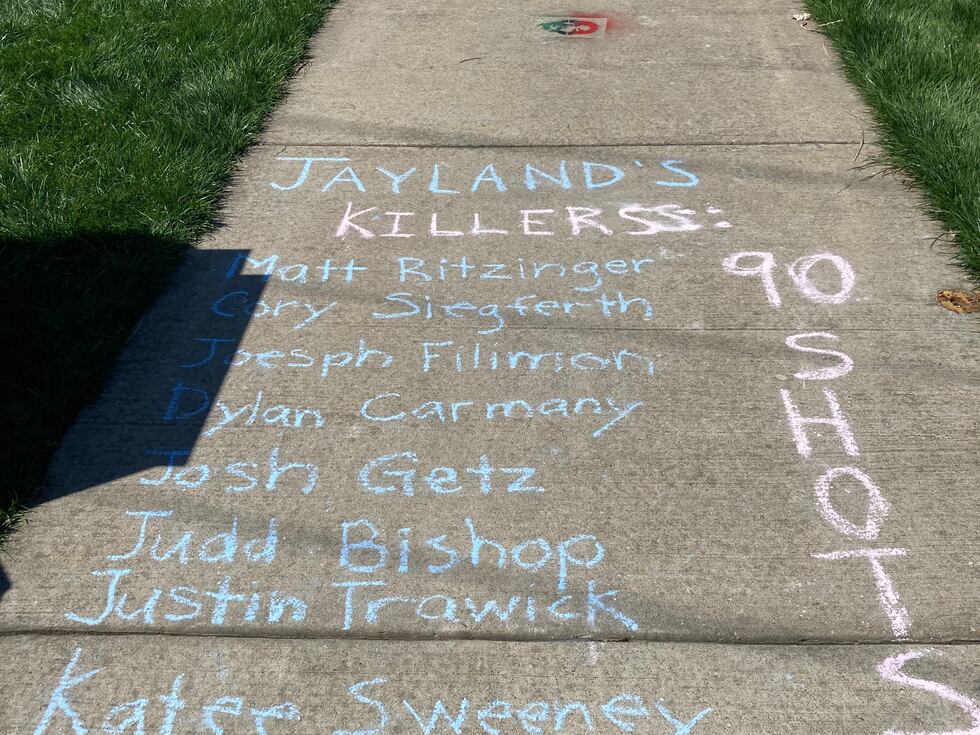 JAYLAND'S
KILLERSS:
Matt Ritzinger
Cory Siegferth
Joesph Filimion
Dylan Carmany
Josh Getz
Judd Bishop
Justin Trawick
Kater Sweeney
90
SHOTS